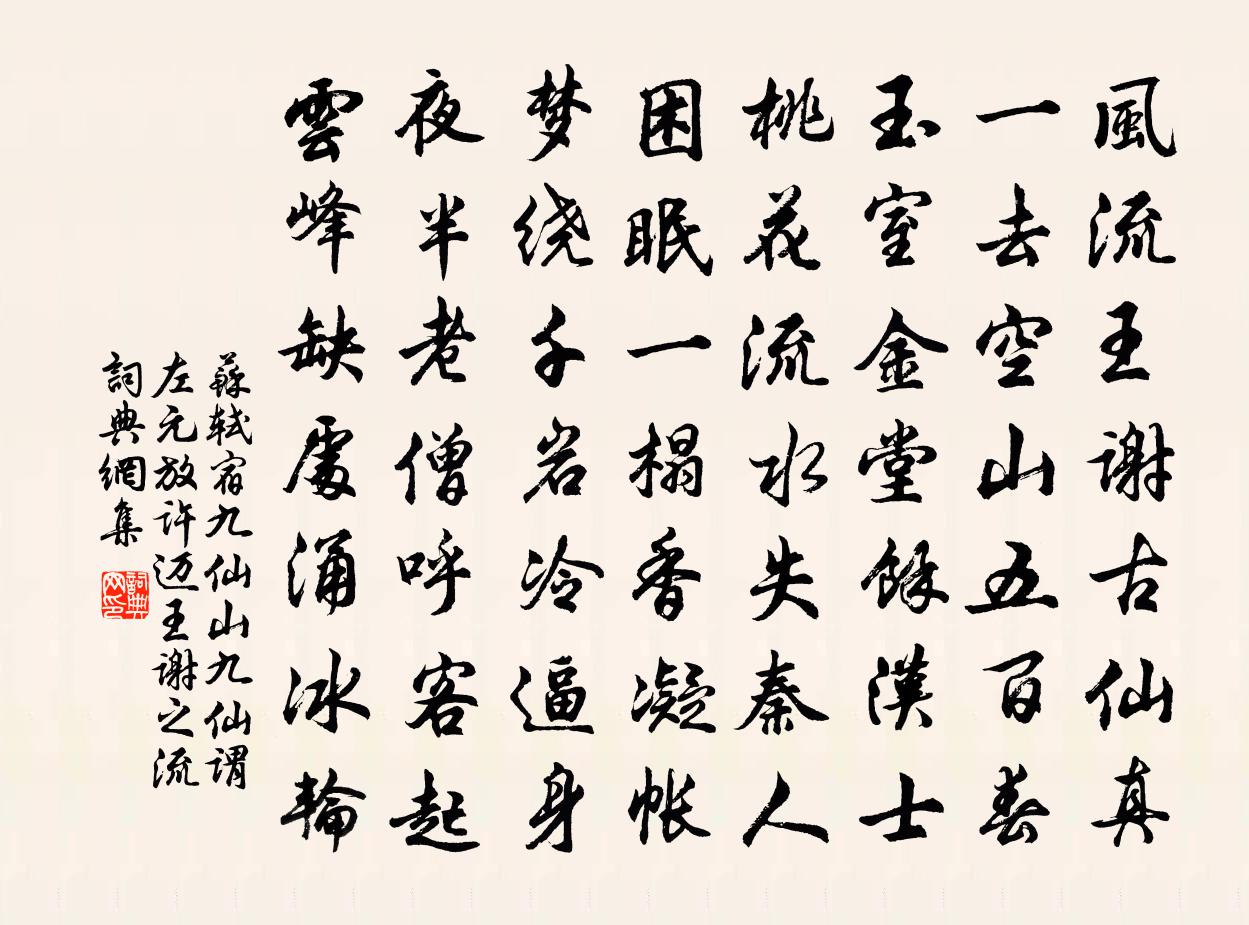 風流王謝古仙真
一去空山五百春
玉室金堂餘漢士
桃花流水失秦人
困眠一榻香凝帳
梦绕千岩冷逼身
夜半老僧呼客起
雲峰缺處涌冰輪
蘇軾宿九仙山九仙謂
左元放许迈王謝之流
詞典網集
詞典网印